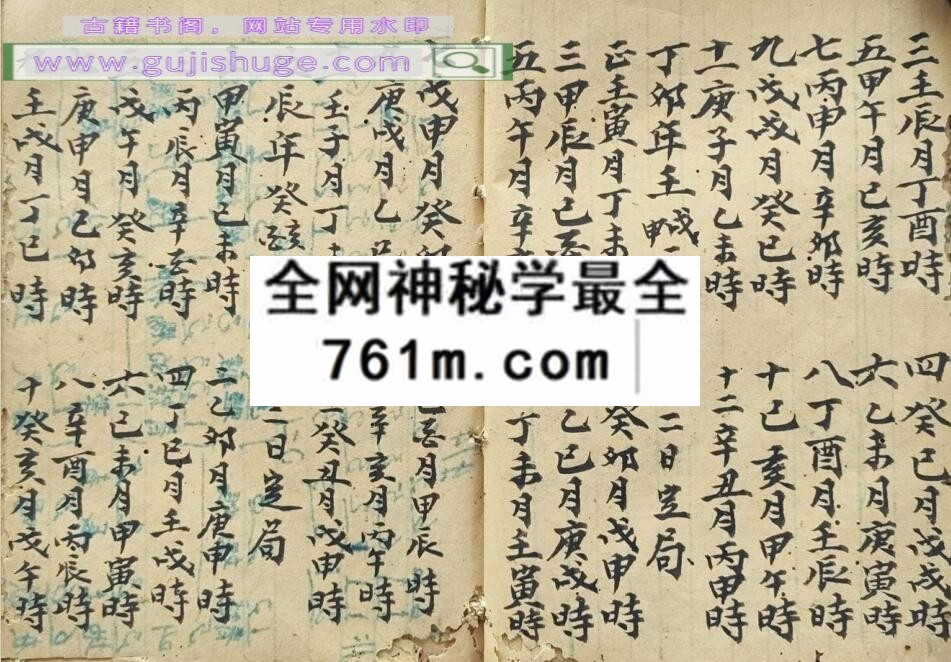 古籍书阁，网站专用水印
www.gujishuge.com
全网神秘学最全
761m.com
三壬辰月丁酉時
四癸巳月戊戌時
五甲午月己亥時
六乙未月庚寅時
七丙申月辛卯時
八丁酉月壬辰時
九戊戌月癸巳時
十己亥月甲午時
十一庚子月乙未時
十二辛丑月丙申時
丁卯年壬戌申
二日定局
正壬寅月丁未
癸卯月戊申時
三甲辰月己酉
乙巳月庚戌時
五丙午月辛
丁未月壬寅時
七戊申月癸卯
酉月甲辰時
庚戌月乙
辛亥月丙午時
壬子月丁
癸丑月戊申時
辰年癸亥
二日定局
甲寅月己未時
二乙卯月庚申時
丙辰月辛酉時
四丁巳月壬戌時
戊午月癸亥時
六己未月甲寅時
庚申月乙卯時
八辛酉月丙辰時
壬戌月丁巳時
十癸亥月戊午時